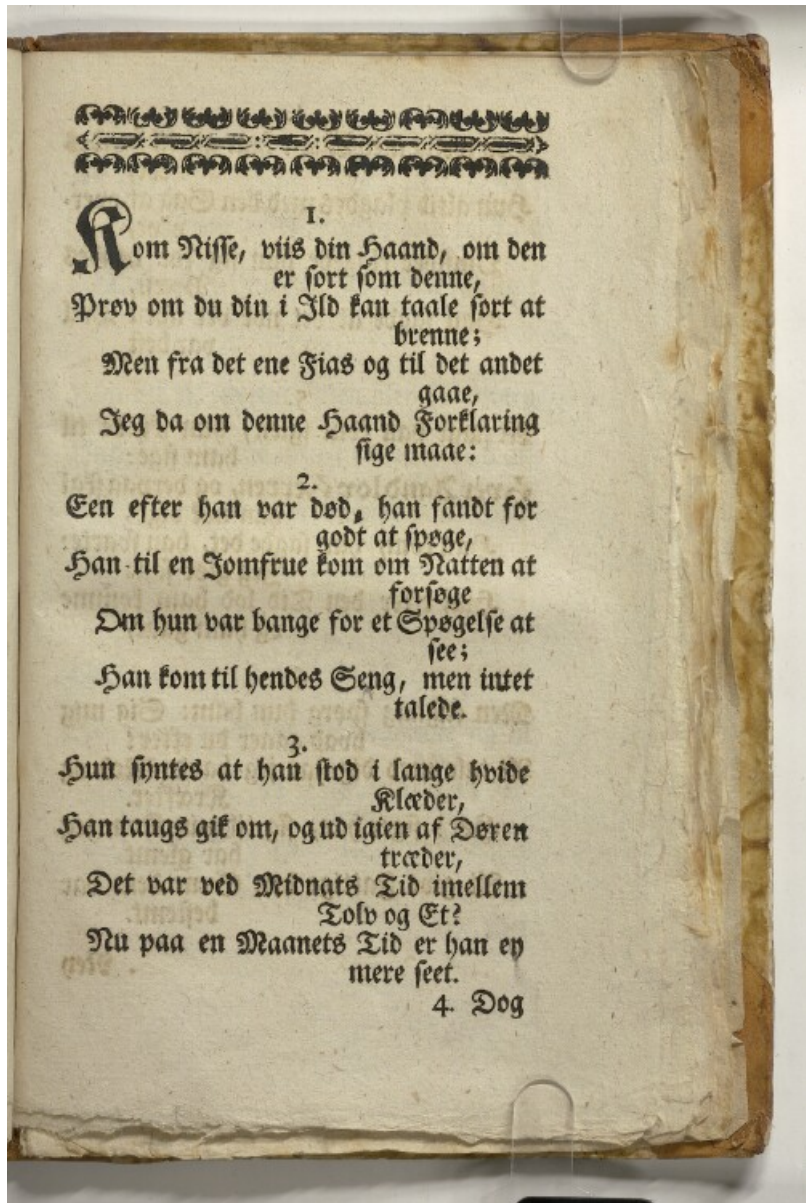 1.
Kom Nisse, viis din Haand, om den
er sort som denne,
Prøv om du din i Ild kan taale sort at
brenne;
Men fra det ene Fias og til det andet
gaae,
Jeg da om denne Haand Forklaring
sige maae:
2.
Een efter han var død, han fandt for
godt at spøge,
Han til en Jomfrue kom om Natten at
forsøge
Om hun var bange for et Spøgelse at
see;
Han kom til hendes Seng, men intet
talede.
3.
Hun syntes at han stod i lange hvide
Klæder,
Han taugs gik om, og ud igien af Døren
træder,
Det var ved Midnats Tid imellem
Tolv og Et?
Nu paa en Maanets Tid er han ey
mere seet.
4. Dog